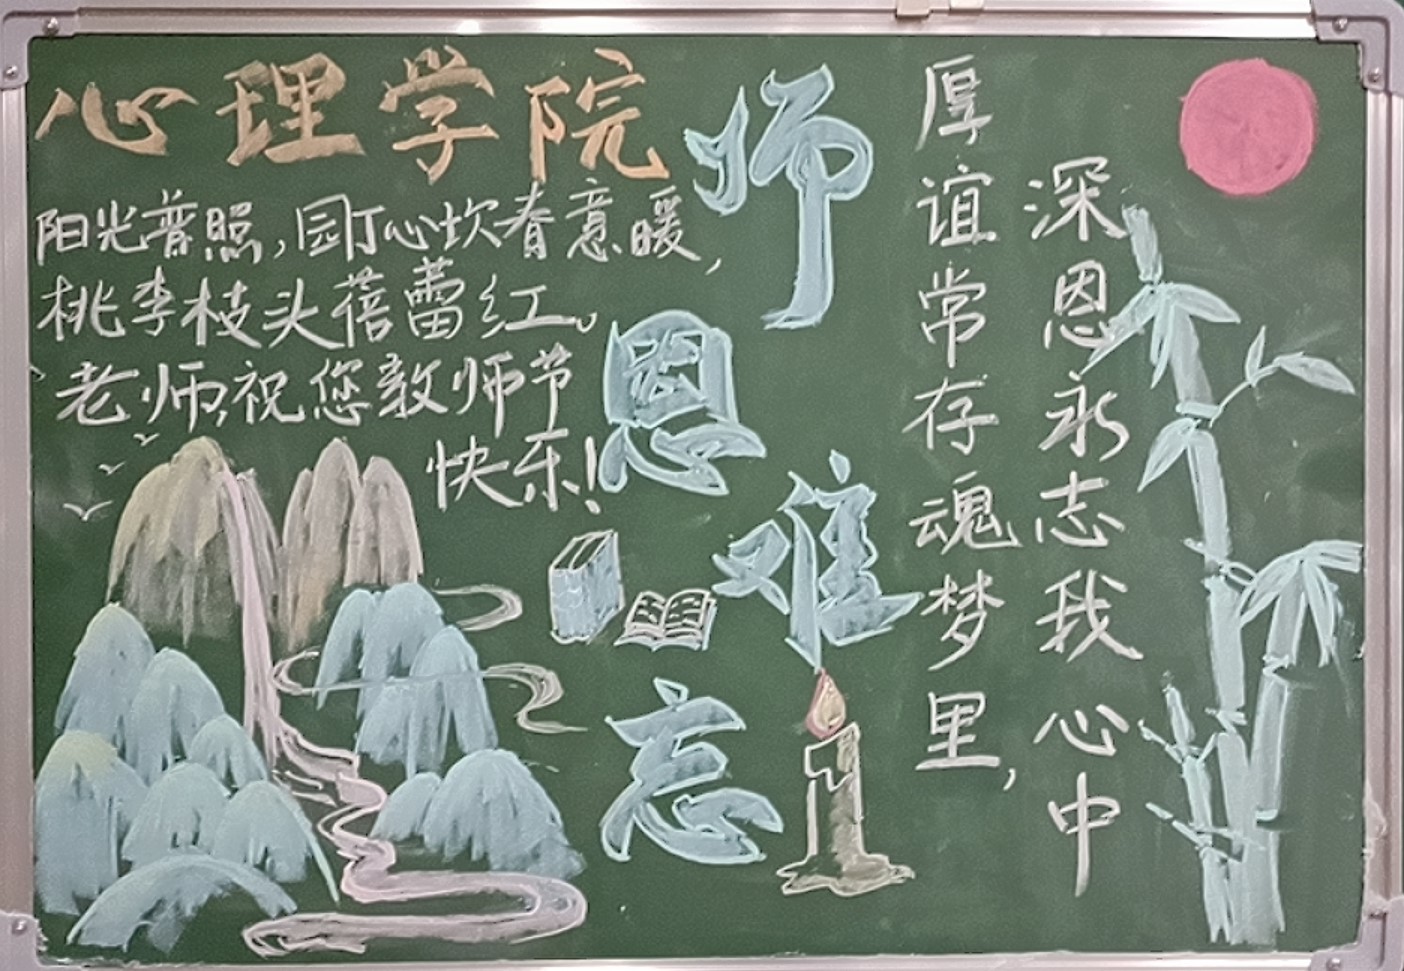 心理学院
阳光普照,园丁心坎春意暖,
桃李枝头蓓蕾红。
老师,祝您教师节
快乐!
师恩难忘
厚谊常存魂梦里,
深恩永志我心中